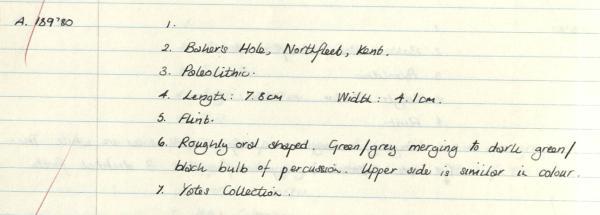 A. 189'80
1.
2. Baker's Hole, Northfleet, Kent.
3. Paleolithic.
4. Length: 7.8cm Width: 4.1cm.
5. Flint.
6. Roughly oval shaped. Green/grey merging to dark green/
black bulb of percussion. Upper side is similar in colour.
7. Yates Collection.